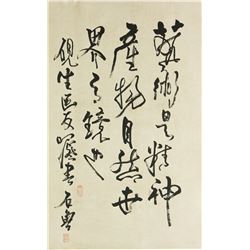 藝術是精神
產物自然世
界之鏡也
硯生医友囑書 石魯